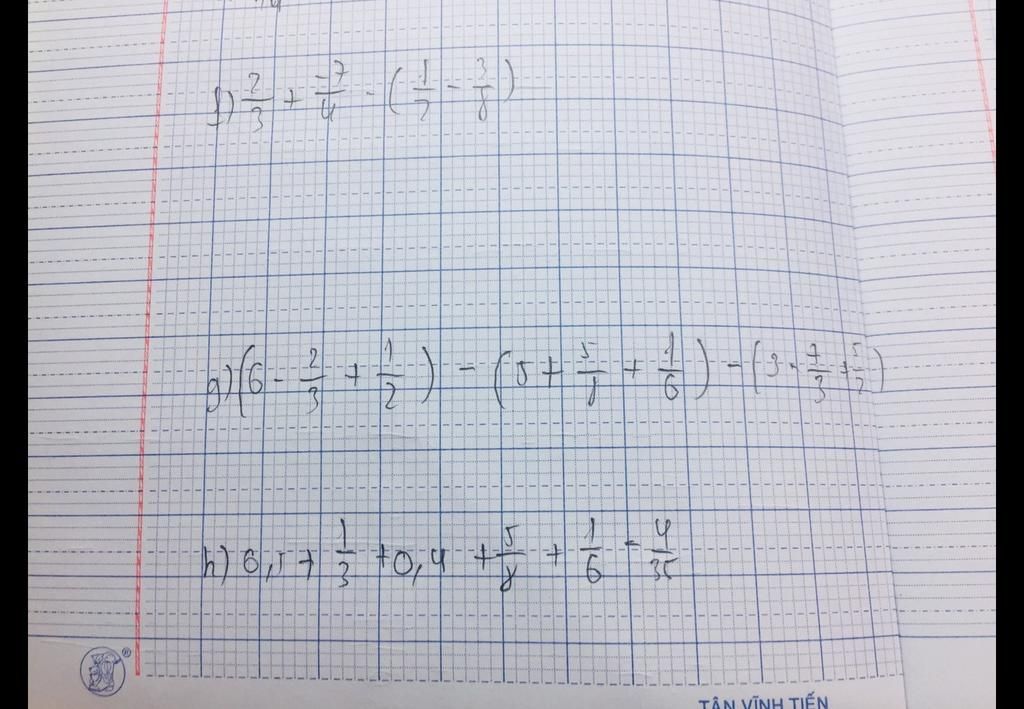 f) 2/3 + -7/4 - (1/2 - 3/8)
g) (6 - 2/3 + 1/2) - (5 + 5/8 + 1/6) - (3 - 7/3 + 5/2)
h) 6,5 + 1/3 + 0,4 + 5/8 + 1/6 - 4/35
®
TÂN VĨNH TIẾN